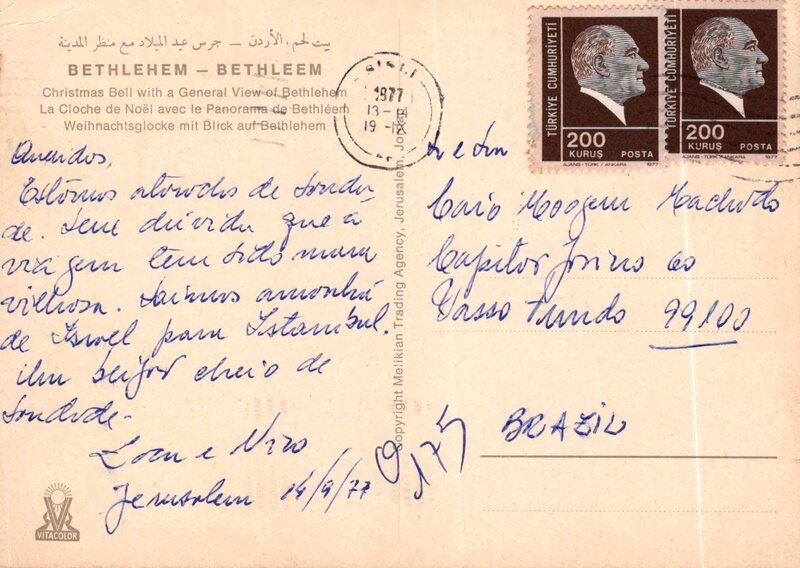 بيت لحم، الأردن — جرس عيد الميلاد مع منظر المدينة
BETHLEHEM – BETHLEEM
Christmas Bell with a General View of Bethlehem
La Cloche de Noël avec le Panorama de Bethléem
Weihnachtsglocke mit Blick auf Bethlehem
Queridos,
Estamos atorados de sauda-
de. Sem dúvida que a
viagem tem sido mara
vilhosa. Saimos amanhã
de Israel para Istambul.
Um beijo cheio de
saudade-
e Niro
Jerusalem 14/9/77
VITACOLOR
Copyright Melikian Trading Agency, Jerusalem, Jordan
ŞIŞLI
1977
13-
19-
TÜRKİYE CUMHURİYETİ
200
KURUŞ POSTA
AJANS-TÜRK/ANKARA 1977
TÜRKİYE CUMHURİYETİ
200
KURUŞ POSTA
AJANS-TÜRK/ANKARA 1977
Caio Moogem Machado
Capitor Jovino 60
Passo Fundo 99100
BRAZIL
175